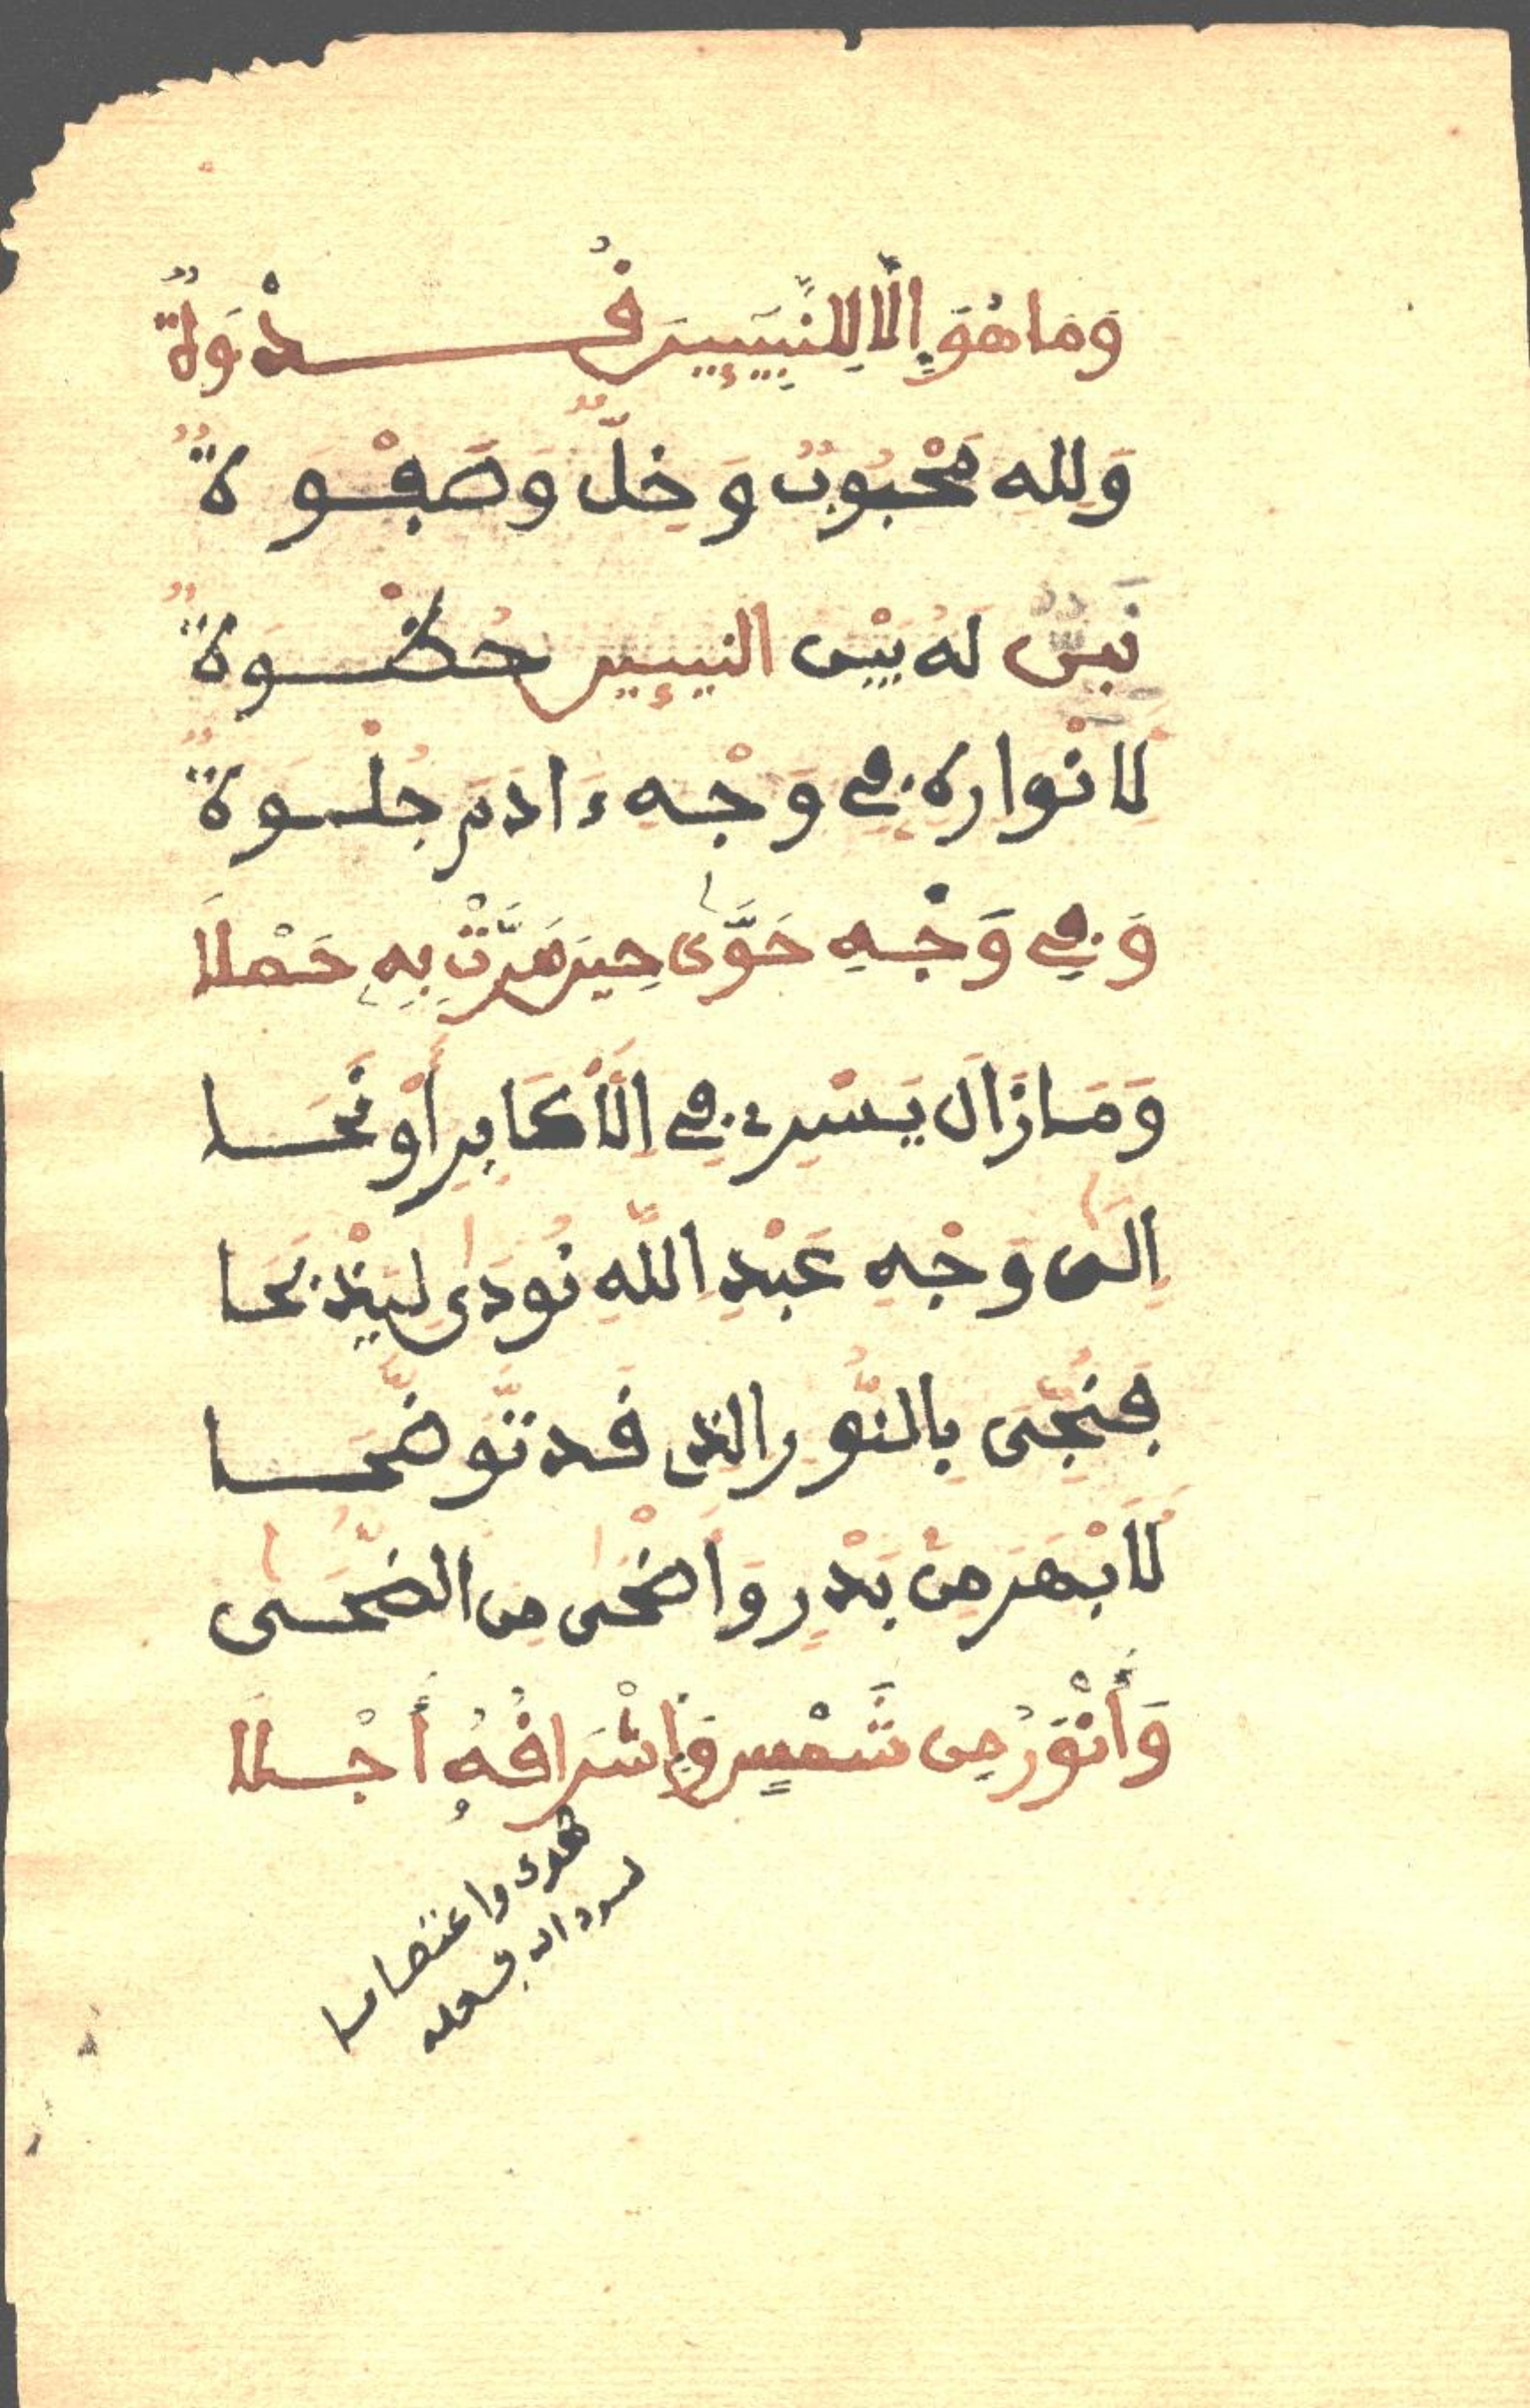 وَمَا هُوَ إِلَّا لِلنَّبِيِّينَ قُدْوَةٌ
وَلِله مَحْبُوبٌ وَخِلٌّ وَصَفْوَةٌ
نَبِيٌّ لَهُ بَيْنَ النبيين حُظْوَةٌ
لِأَنْوَارِهِ فِي وَجْهِ ءَادَمَ جُلْوَةٌ
وَفِي وَجْهِ حَوَّى حِينَ مَرَّتْ بِهِ حَمْلَا
وَمَازَالَ يَسْرِي فِي الْأَكَابِرِ أَوْ نَحَا
إِلَى وَجْهِ عَبْدِ اللَّهِ نُودَى لِيَذْبَحَا
فَنُجِّىَ بِالنُّورِ الذِي قَد تَّوَضَّحَا
لَأَبْهَرُ مِنْ بَدْرٍ وَأَضْحَى مِنَ الضُّحَى
وَأَنْوَرُ مِن شَمْسٍ وَإِشْرَاقُهُ أَجْلَا
هدى واعتصاما